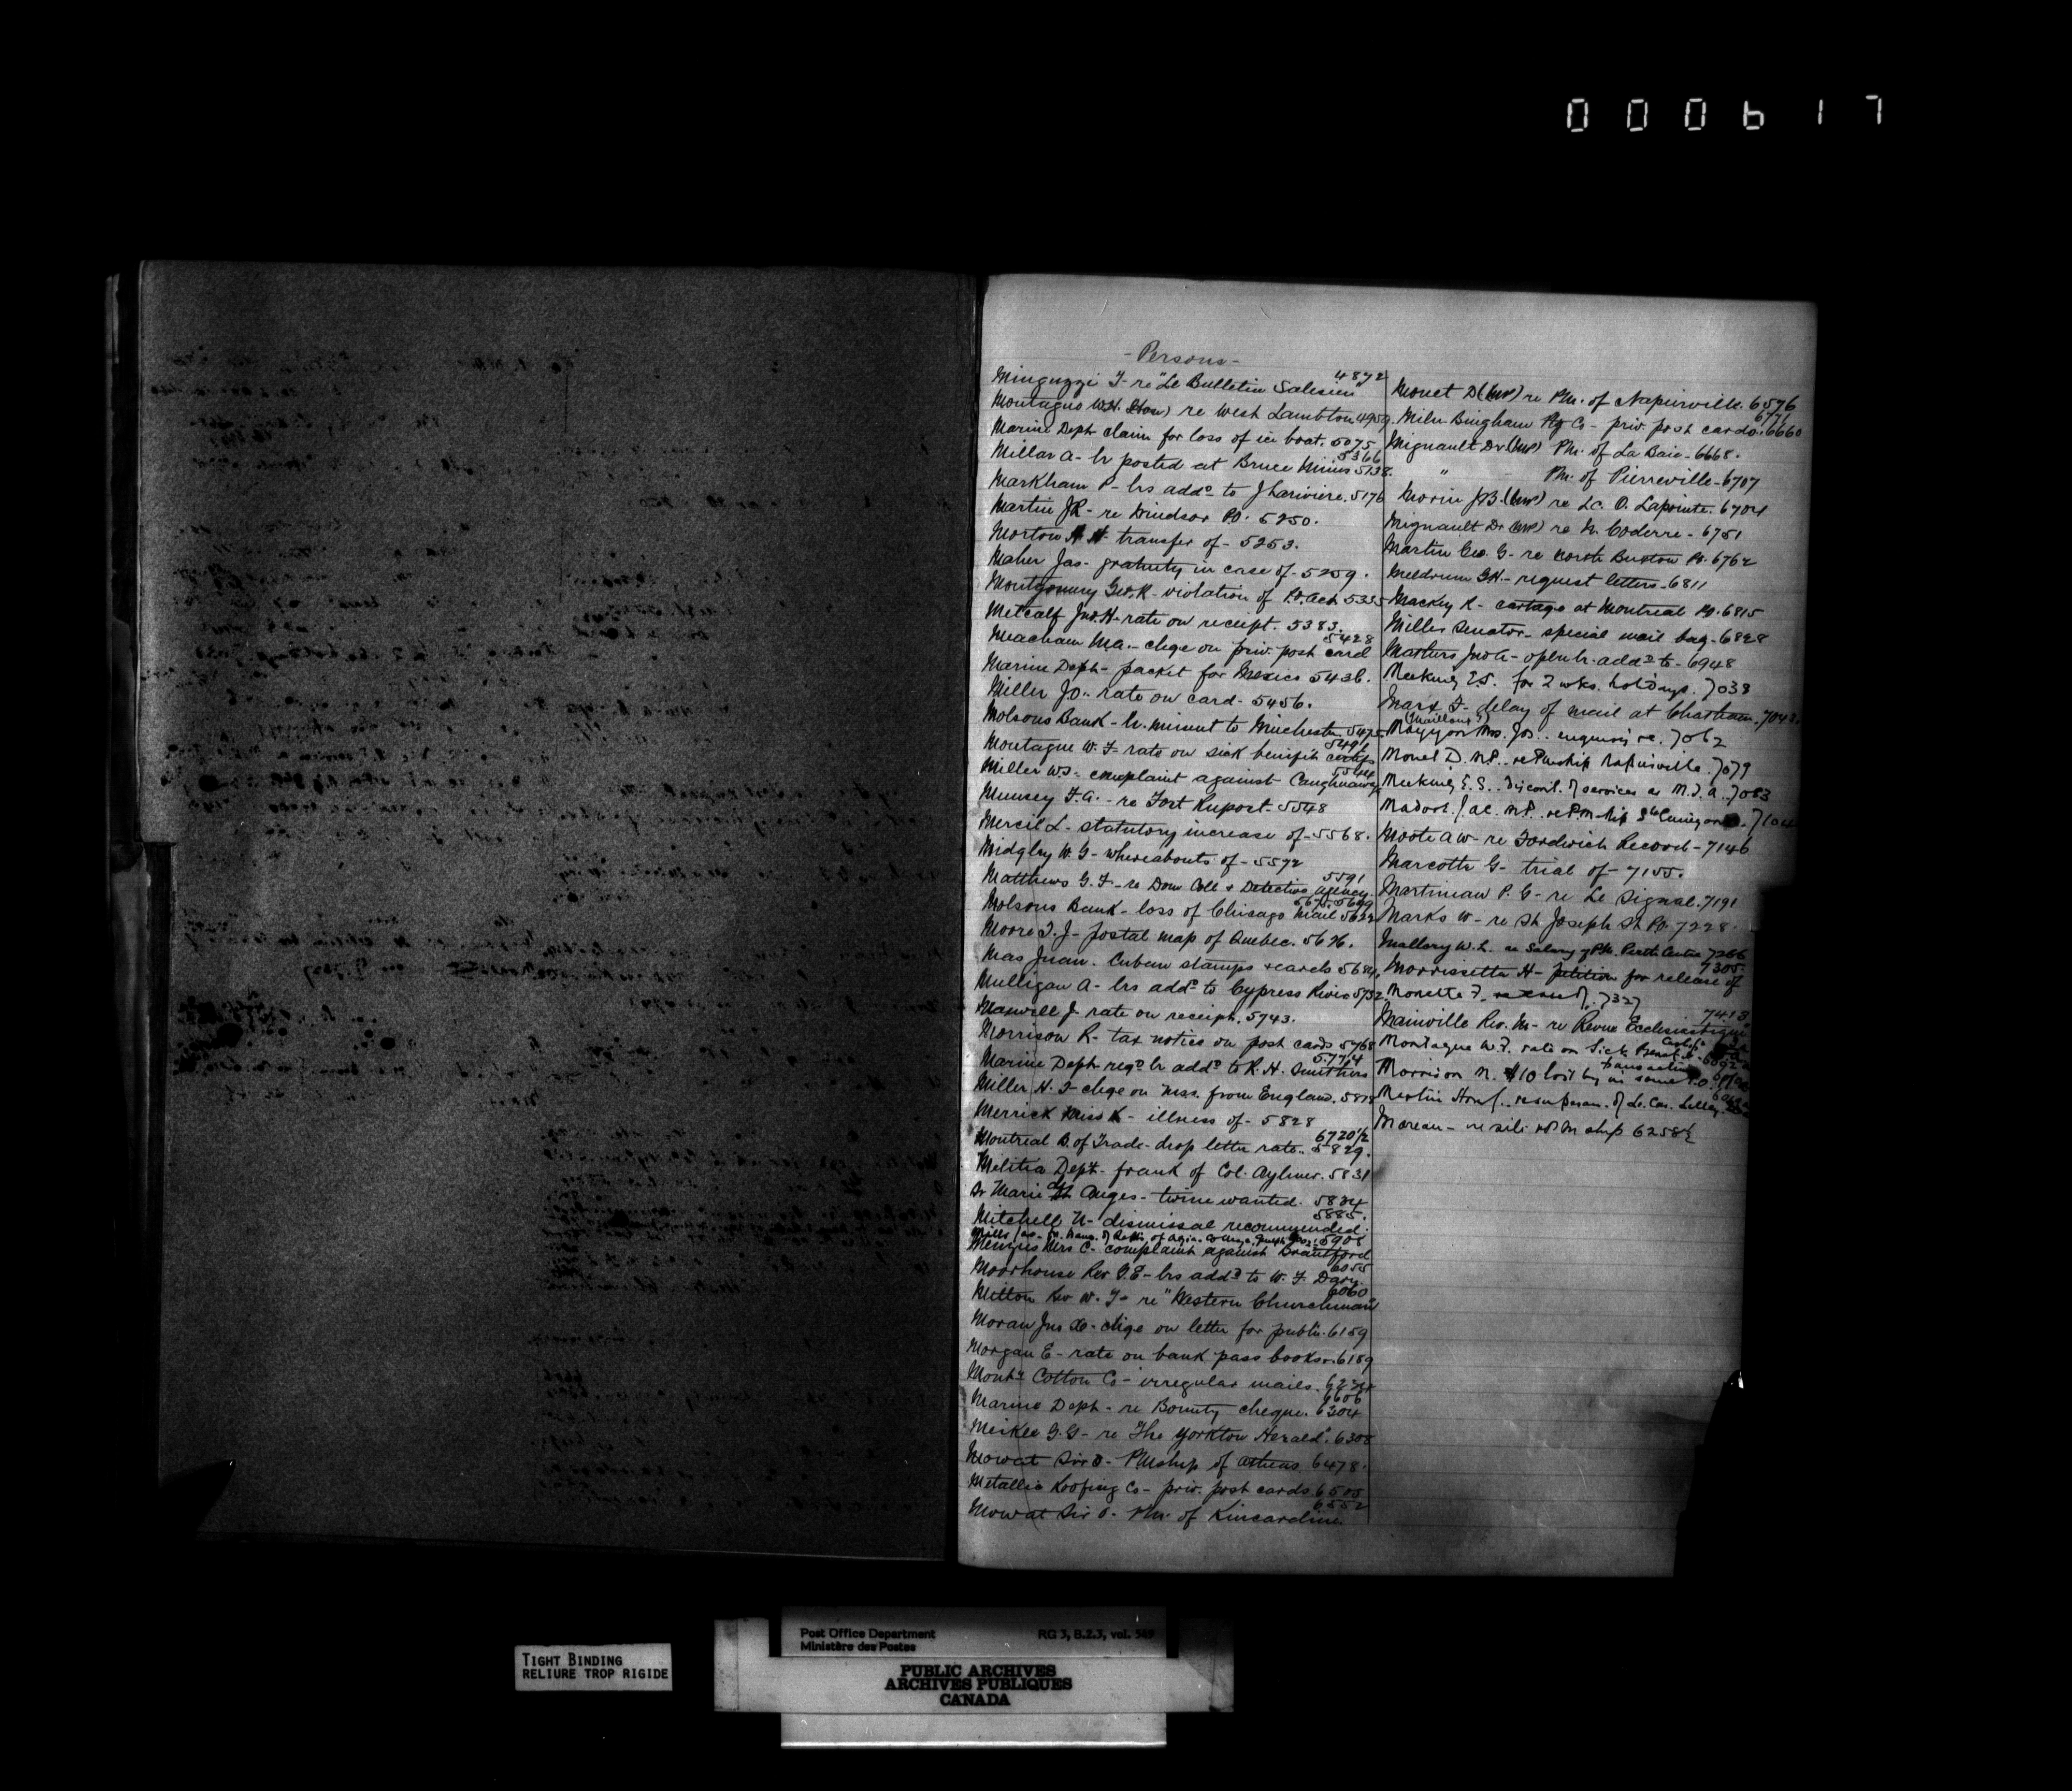 000617
- Persons -
Minguzzi F - re "Le Bulletin Salesien" 4872
Montague W.H. (Hon) re West Lambton 4959.
Marine Dept claim for loss of ice boat. 5075
Millar A - lr posted at Bruce Mines 5138. 5366
Markham P - lrs addd to J Lariviere. 5176
Martin JR - re Windsor PO. 5250.
Morton transfer of - 5253.
Maher Jas - gratuity in case of - 5259.
Montgomery Geo. R - violation of P.O. Act 5335
Metcalf Jno. H - rate on receipt. 5383.
Meacham MA. - chge on priv. post card 5428
Marine Dept - packet for Mexico 5436.
Miller Jo. - rate on card - 5456.
Molsons Bank - lr. missent to Winchester 5475
Montague W. F rate on sick benefit certifs 5491
Miller WJ - complaint against Caughnawaga
Munsey F. A. - re Fort Rupert - 5548
Mercil L - statutory increase of - 5568.
Midgley W. G - whereabouts of - 5572
Matthews G. F - re Dom Coll & Detective Agency. 5591
Molsons Bank - loss of Chicago Mail 5622
Moore T. J - postal map of Quebec. 5626.
Mas Juan. Cuban stamps & cards 5684.
Mulligan A - lrs addd to Cypress River 5732
Maxwell J - rate on receipt. 5743.
Morrison R - tax notices on post cards 5768
Marine Dept regd lr addd to R. H. Smithers 5774
Miller H. F chge on mss. from England. 5818
Merrick Miss K - illness of - 5828
Montreal B. of Trade - drop letter rate. 5829. 6720½
Militia Dept. frank of Col. Aylmer. 5831
Sr Marie des Anges - twine wanted. 5834
Mitchell N - dismissal recommended. 5885.
Menzies Mrs C - complaint against Brantford 5908
Moorhouse Rev - lrs addd to W. F Davy. 6055
Mitton Rev W. J - re "Western Churchman" 6060
Moran Jno - chge on letter for public. 6159
Morgan E - rate on bank pass books - 6189
Montl Cotton Co - irregular mails. 6274
Marine Dept - re Bounty cheque. 6304 6606
Meikle G. G - re "The Yorkton Herald". 6308
Mowat Sir O - PMship of Athens 6478.
Metallic Roofing Co - priv. post cards 6505
Mowat Sir O - PM. of Kincardine 6552
Monet D (MP) re PM. of Napierville. 6576
Miln-Bingham Ptg Co - priv. post cards. 6660 6776
Mignault Dr (MP) PM. of La Baie - 6668.
" PM. of Pierreville - 6707
Morin JB. (MP) re L.C. O. Lapointe. 6704
Mignault Dr (MP) re N. Coderre - 6751
Martin Geo. G - re North Buxton PO. 6762
Meldrum GH. - request letters - 6811
Mackey R - cartage at Montreal PO. 6815
Miller Senator - special mail bag - 6828
Masters Jno A - open lr. addd to - 6948
Meeking E.S. for 2 wks. holidays. 7038
Marx F - delay of mail at Chatham. 7043.
(Maillous?)
Mayyon Mrs. Jos. enquiry re. 7062
Monet D. M.P. re PMship Napierville. 7079
Meeking E. S. Discont. of services as M.T.A. 7083
Moote AW - re Fordwich Record - 7146
Marcotte G - trial of - 7155.
Martineau P. G - re Le Signal. 7191
Marks W - re St Joseph St PO. 7228.
Mallory W. L. re Salary of PM. 7266
Morrissette H - petition for release of 7305
Monette F. 7327
Mainville Rev. M - re Revue Ecclesiastique 7413
Montague W. F. rate on Sick Benefit
Morrison N. $10 lost by in some transaction
Moreau - PM ship 6258½
TIGHT BINDING
RELIURE TROP RIGIDE
Post Office Department
Ministère des Postes
RG 3, B.2.3, vol. 549
PUBLIC ARCHIVES
ARCHIVES PUBLIQUES
CANADA